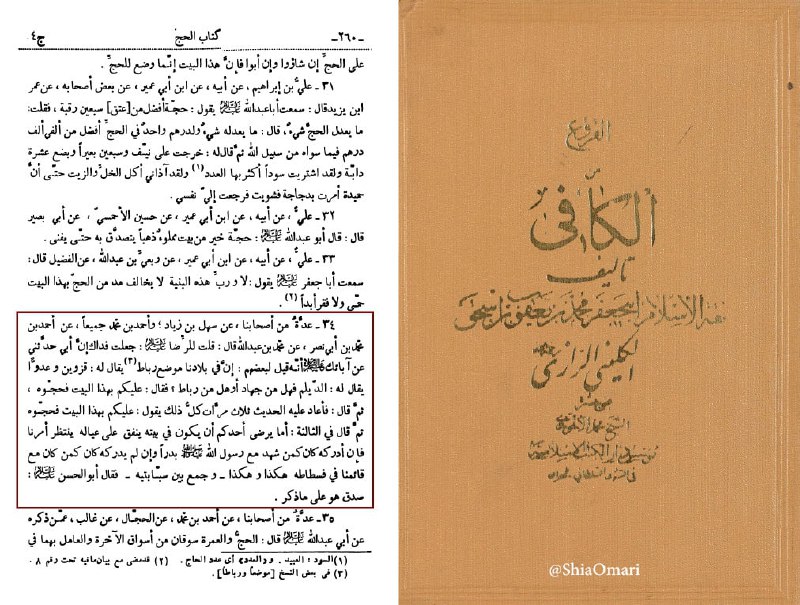 -٢٦٠- كتاب الحج ج٤
على الحجِّ إن شاؤوا وإن أبوا فإنَّ هذا البيت إنّما وضع للحجِّ.
٣١ ـ عليُّ بن إبراهيم، عن أبيه، عن ابن أبي عمير، عن بعض أصحابه، عن عمر
ابن يزيد قال: سمعت أبا عبدالله عليه السلام يقول: حجّة أفضل من [عتق] سبعين رقبة، فقلت:
ما يعدل الحجَّ شيءٌ، قال: ما يعدله شيءٌ ولدرهم واحد في الحجِّ أفضل من ألفي ألف
درهم فيما سواه من سبيل الله ثمَّ قال له: خرجت على نيّف وسبعين بعيراً وبضع عشرة
دابّة ولقد اشتريت سوداً أكثر بها العدد(١) ولقد آذاني أكل الخلِّ والزيت حتّى أنَّ
حميدة أمرت بدجاجة فشويت فرجعت إليَّ نفسي.
٣٢ ـ عليٌّ، عن أبيه، عن ابن أبي عمير، عن حسين الأحمسيِّ، عن أبي بصير
قال: قال أبو عبدالله عليه السلام: حجّة خير من بيت مملوء ذهباً يتصدَّق به حتّى يفنى.
٣٣ ـ عليٌّ، عن أبيه، عن ابن أبي عمير، عن ربعيِّ بن عبدالله، عن الفضيل قال:
سمعت أبا جعفر عليه السلام يقول: لا وربِّ هذه البنية لا يخالف مدمن الحجِّ بهذا البيت
حمّى ولا فقر أبداً(٢).
٣٤ ـ عدَّةٌ من أصحابنا، عن سهل بن زياد؛ وأحمد بن محمّد جميعاً، عن أحمد بن
محمّد بن أبي نصر، عن محمّد بن عبدالله قال: قلت للرِّضا عليه السلام: جعلت فداك إنَّ أبي حدَّثني
عن آبائك عليهم السلام أنّه قيل لبعضهم: إنَّ في بلادنا موضع رباط(٣) يقال له: قزوين وعدوًّا
يقال له: الدّيلم فهل من جهاد أو هل من رباط؟ فقال: عليكم بهذا البيت فحجّوه،
ثمَّ قال: فأعاد عليه الحديث ثلاث مرَّات كلُّ ذلك يقول: عليكم بهذا البيت فحجّوه
ثمَّ قال في الثالثة: أما يرضى أحدكم أن يكون في بيته ينفق على عياله ينتظر أمرنا
فإن أدركه كان كمن شهد مع رسول الله صلى الله عليه وآله بدراً وإن لم يدركه كان كمن كان مع
قائمنا في فسطاطه هكذا وهكذا ـ وجمع بين سبّابتيه ـ فقال أبو الحسن عليه السلام:
صدق هو على ما ذكر.
٣٥ ـ عدَّةٌ من أصحابنا، عن أحمد بن محمّد، عن الحجّال، عن غالب، عمّن ذكره
عن أبي عبدالله عليه السلام قال: الحجُّ والعمرة سوقان من أسواق الآخرة والعامل بهما في
(١) السود: العبيد. و«العدد» أي عدد الحاج. (٢) قد مضى مع بيان ما فيه تحت رقم ٨.
(٣) في بعض النسخ [موضعاً ورباطاً].
الفروع
من
الكافي
تأليف
ثقة الإسلام أبي جعفر محمد بن يعقوب بن إسحق
الكليني الرازي
الشيخ محمد الآخوندي
@ShiaOmari